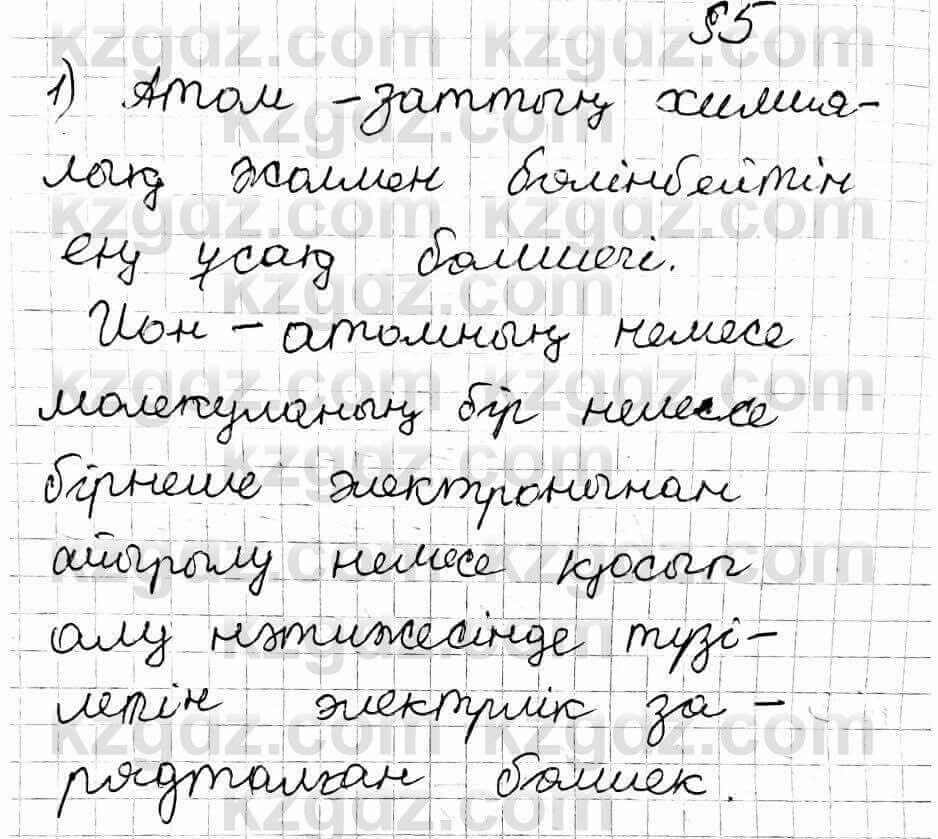 §5
1) Атом - заттың химия-
лық жолмен бөлінбейтін
ең ұсақ бөлшегі.
Ион - атомның немесе
молекуланың бір немесе
бірнеше электронынан
айырылу немесе қосып
алу нәтижесінде түзі-
летін электрлік за-
рядталған бөлшек.